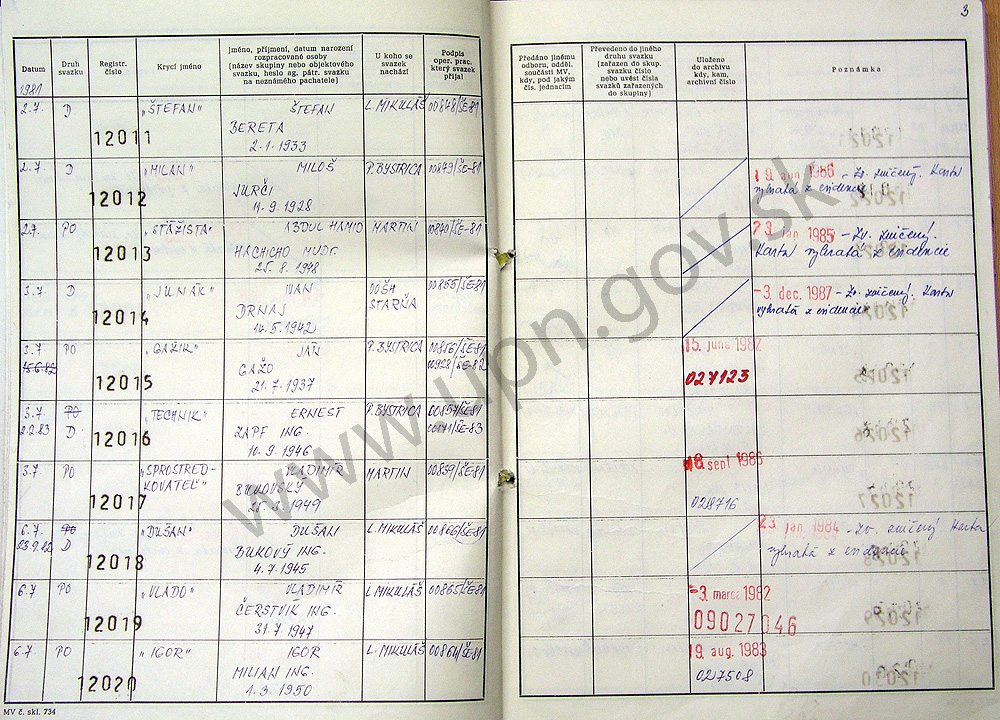 3
Datum
Druh svazku
Registr. číslo
Krycí jméno
Jméno, příjmení, datum narození rozpracované osoby (název skupiny nebo objektového svazku, heslo ag. pátr. svazku na neznámého pachatele)
U koho se svazek nachází
Podpis oper. prac. který svazek přijal
Předáno jinému odboru, odděl. součásti MV, kdy, pod jakým čís. jednacím
Převedeno do jiného druhu svazku (zařazen do skup. svazku číslo nebo uvést číslo svazků zařazených do skupiny)
Uloženo do archivu kdy, kam, archivní číslo
Poznámka
1981
2.7. D 12011 „ŠTEFAN" ŠTEFAN L. MIKULÁŠ
BERETA
2.1.1933
2.7. D 12012 „MILAN" MILOŠ P. BYSTRICA 00849/ŠE-81
JURČI
11.9.1928
1986 - Zv. zničený. Karta
vybratá z evidencie
2.7. PO 12013 „STÁŽISTA" ABDUL HAMID MARTIN
HACHICHO MUDR.
25.8.1948
23 jan 1985 - Zv. zničený.
Karta vybratá z evidencie
3.7. D 12014 „JUNÁK" IVAN 00855/ŠE-81
DRNAJ
14.5.1942
-3. dec. 1987 - Zv. zničený. Karta
vybratá z evidencie
3.7 PO 12015 „GAŽIK" JÁN P. BYSTRICA 00856/ŠE-81
15.6.82 00928/ŠE-82
GAŽO
21.7.1937
15. júna 1982
027123
3.7. PO 12016 „TECHNIK" ERNEST P. BYSTRICA 00857/ŠE-81
2.2.83 D ZAPF ING.
10.9.1946
3.7 PO 12017 „SPROSTRED-
KOVATEĽ" VLADIMÍR MARTIN 00859/ŠE-81
BUKOVSKÝ
1949
sept 1986
028716
6.7. PO 12018 „DUŠAN" DUŠAN L. MIKULÁŠ 00866/ŠE-81
23.9.82 D BUKOVÝ ING.
4.7.1945
23. jan. 1984 - Zv. zničený Karta
vybratá z evidencie
6.7 PO 12019 „VLADO" VLADIMÍR L. MIKULÁŠ 00865/ŠE-81
ČERSTVÍK ING.
31.7.1947
-3. marca 1982
09027046
6.7 PO 12020 „IGOR" IGOR L. MIKULÁŠ
MILIAN ING.
1.3.1950
19. aug. 1983
027508
MV č. skl. 734
www.upn.gov.sk